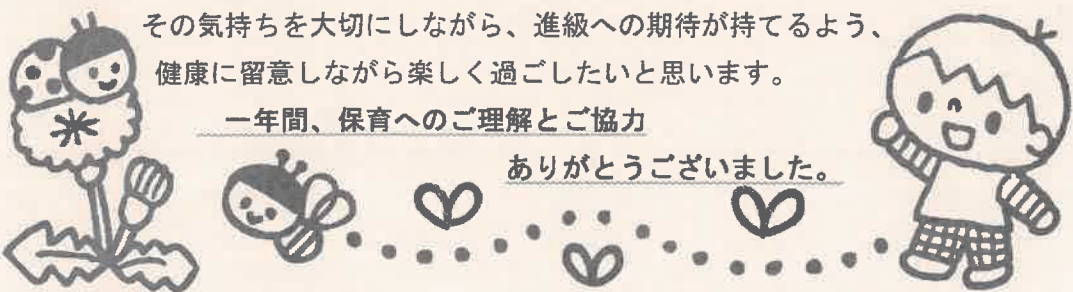 その気持ちを大切にしながら、進級への期待が持てるよう、
健康に留意しながら楽しく過ごしたいと思います。
一年間、保育へのご理解とご協力
ありがとうございました。